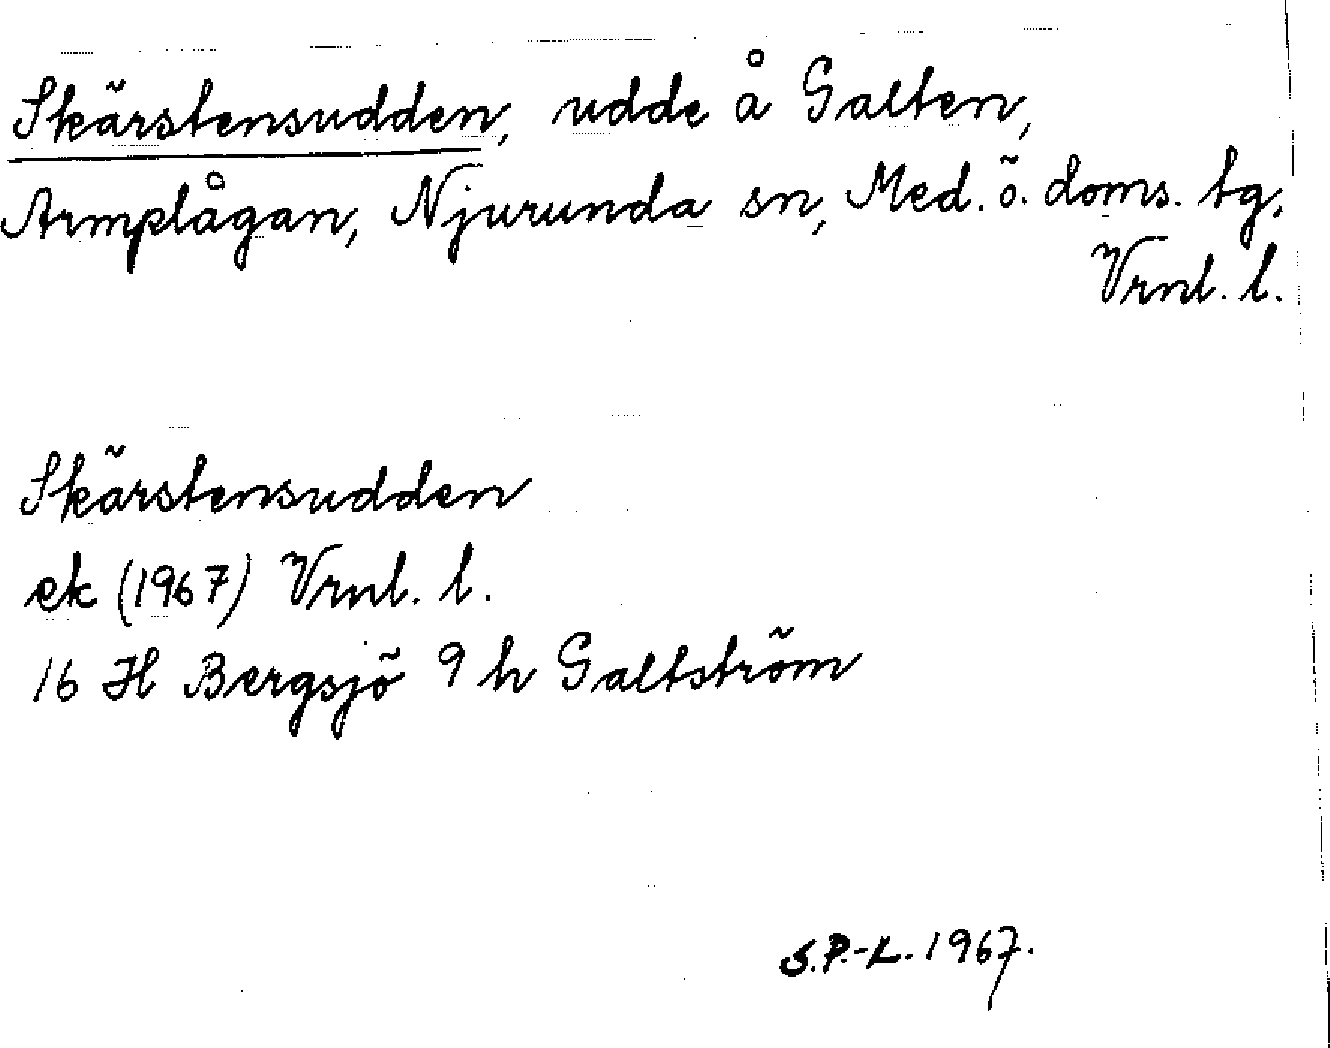 Skärstensudden, udde å Galten,
Armplågan, Njurunda sn, Med. ö. doms. tg,
Vrnl. l.
Skärstensudden
ek (1967) Vrnl. l.
16 H Bergsjö 9 h Galtström
S.P.-L. 1967.